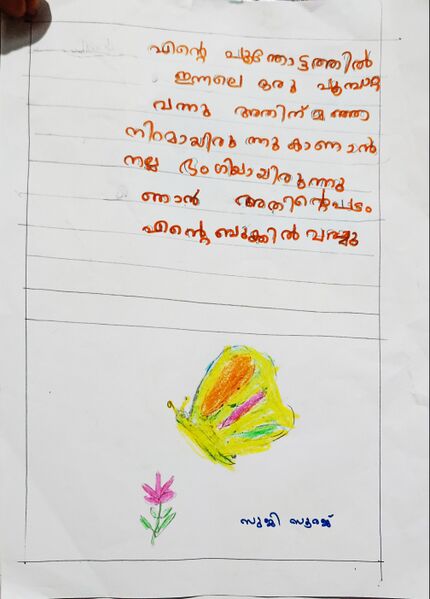 എന്റെ പൂന്തോട്ടത്തിൽ
ഇന്നലെ ഒരു പൂമ്പാറ്റ
വന്നു അതിന് മഞ്ഞ
നിറമായിരു ന്നു കാണാൻ
നല്ല ഭംഗിയായിരുന്നു
ഞാൻ അതിന്റെപടം
എന്റെ ബുക്കിൽ വരച്ചു
സുജി സുരജ്